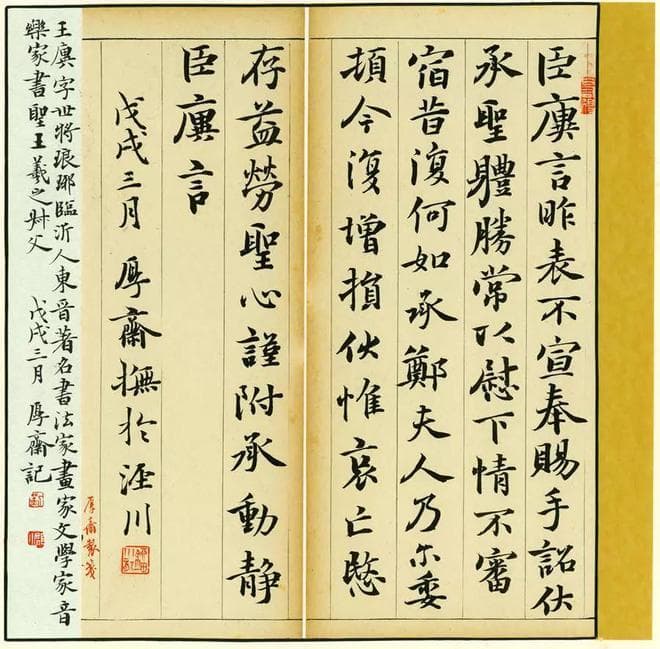 臣廙言昨表不宣奉賜手詔伏
承聖體勝常以慰下情不審
宿昔復何如承鄭夫人乃尓委
頓今復增損伏惟哀亡愍
存益勞聖心謹附承動静
臣廙言
戊戌三月厚齋撫於涇川
王廙字世將琅琊臨沂人東晉著名書法家畫家文學家音
樂家書聖王羲之叔父
戊戌三月厚齋記
厚齋製箋